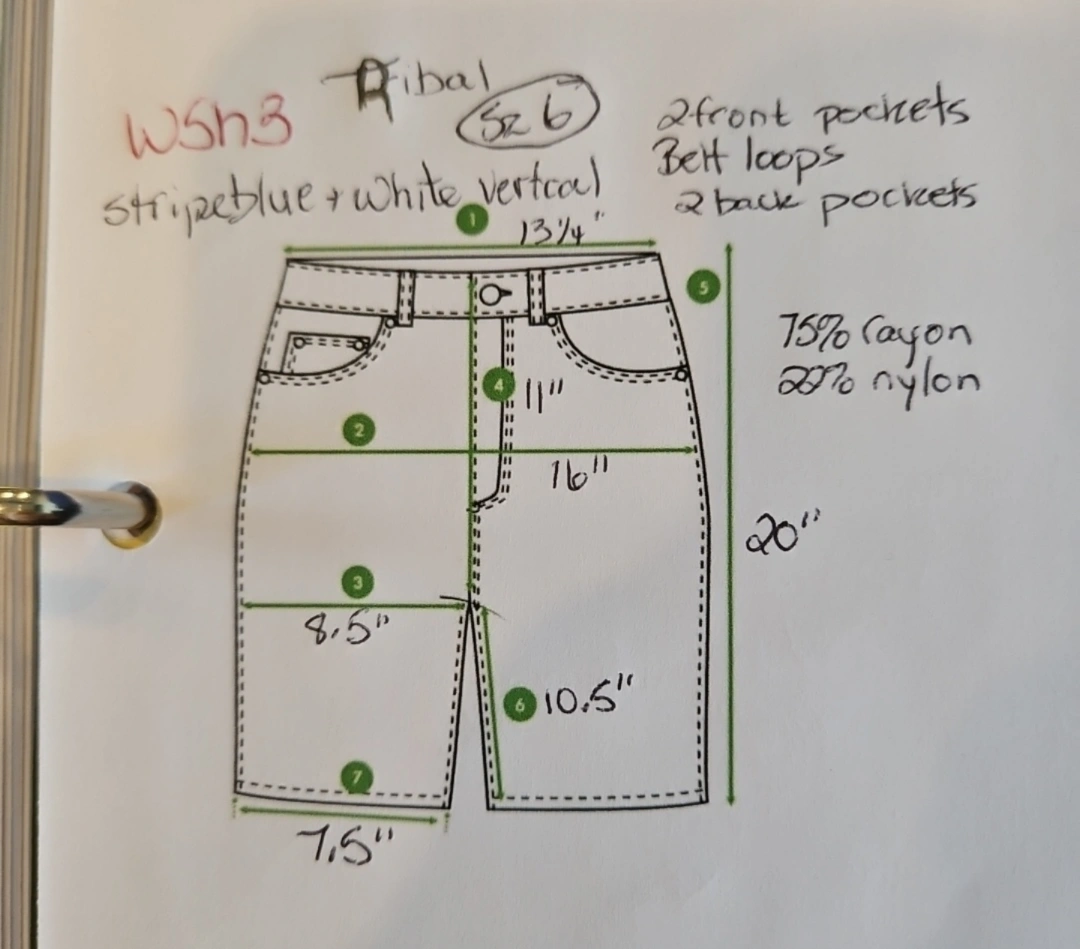 Tribal
WSh3
Sz 6
stripe blue + white vertcal
2 front pockets
Belt loops
2 back pockets
1
13 1/4"
5
75% rayon
nylon
4
11"
2
16"
20"
3
8.5"
6
10.5"
7
7.5"